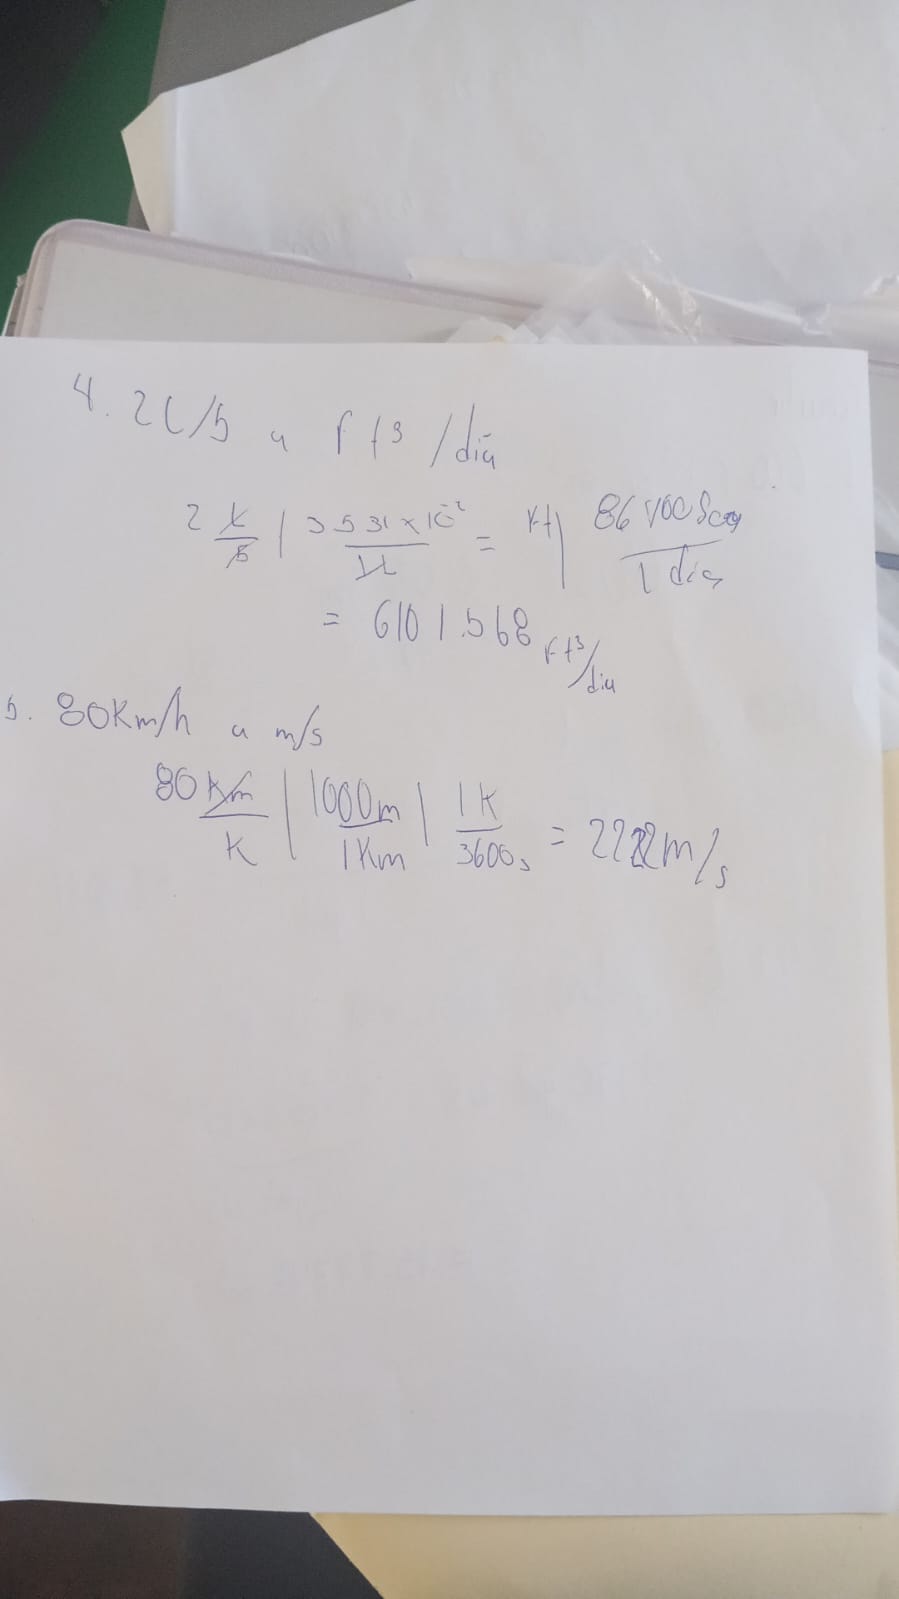 4. 2L/s a ft³/día
2 L/s | 3.531x10⁻² / 1L = ft | 86400 Seg / 1 día
= 6101.568 ft³/dia
5. 80Km/h a m/s
80 Km/h | 1000m / 1Km | 1h / 3600s = 22.22m/s